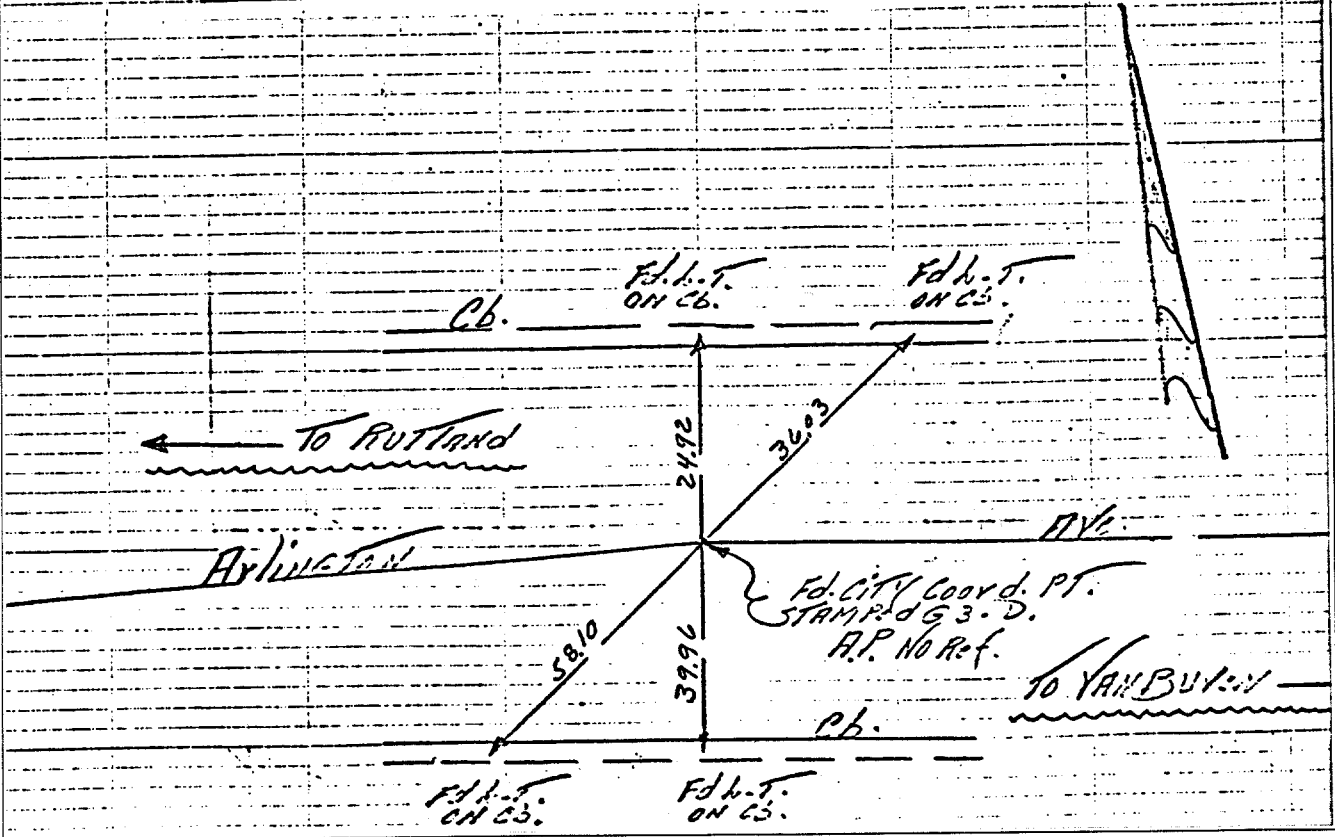 Fd. L.T.
ON Cb.
Fd L.T.
ON Cb.
Cb.
TO RUTLAND
24.92
36.03
Arlington
AVE.
Fd. CITY Coord. PT.
STAMPEd G 3-D.
A.P. No Ref.
58.10
39.96
TO VAN BUREN
Cb.
Fd L.T.
ON Cb.
Fd L.T.
ON Cb.